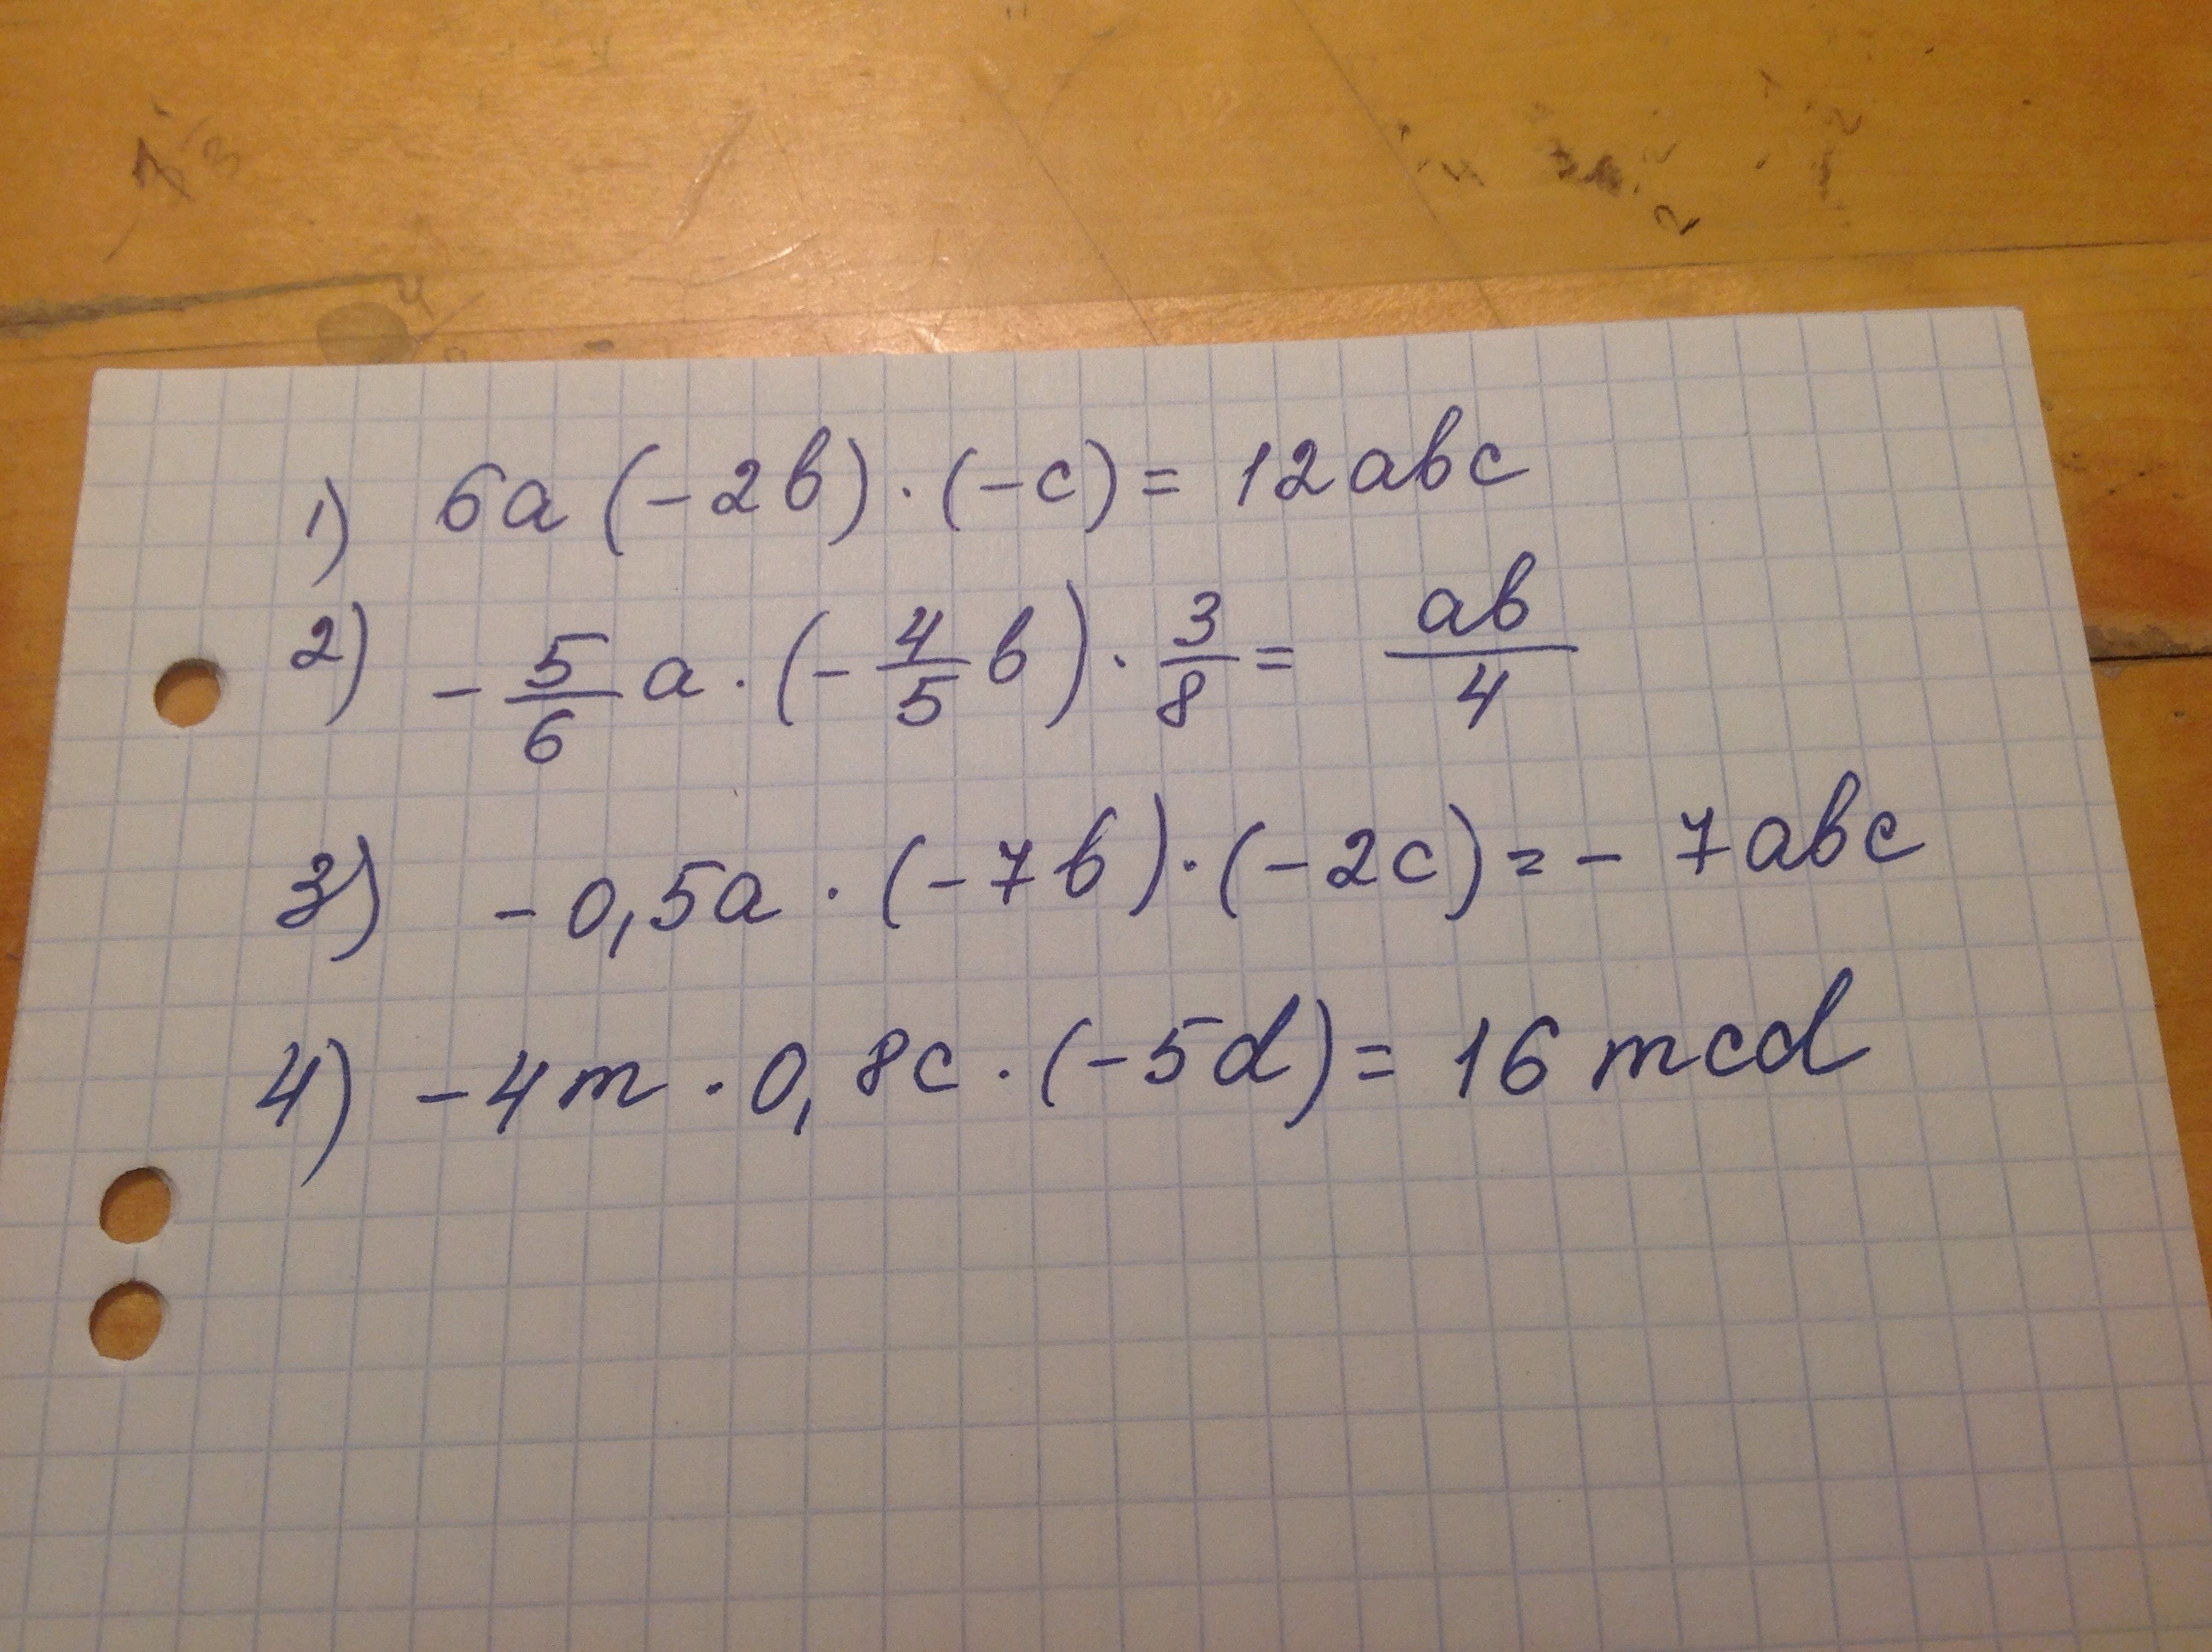 1) 6a (-2b) · (-c) = 12abc
2) - 5/6 a · (- 4/5 b) · 3/8 = ab/4
3) - 0,5a · (-7b) · (-2c) = - 7abc
4) - 4m · 0,8c · (-5d) = 16 mcd